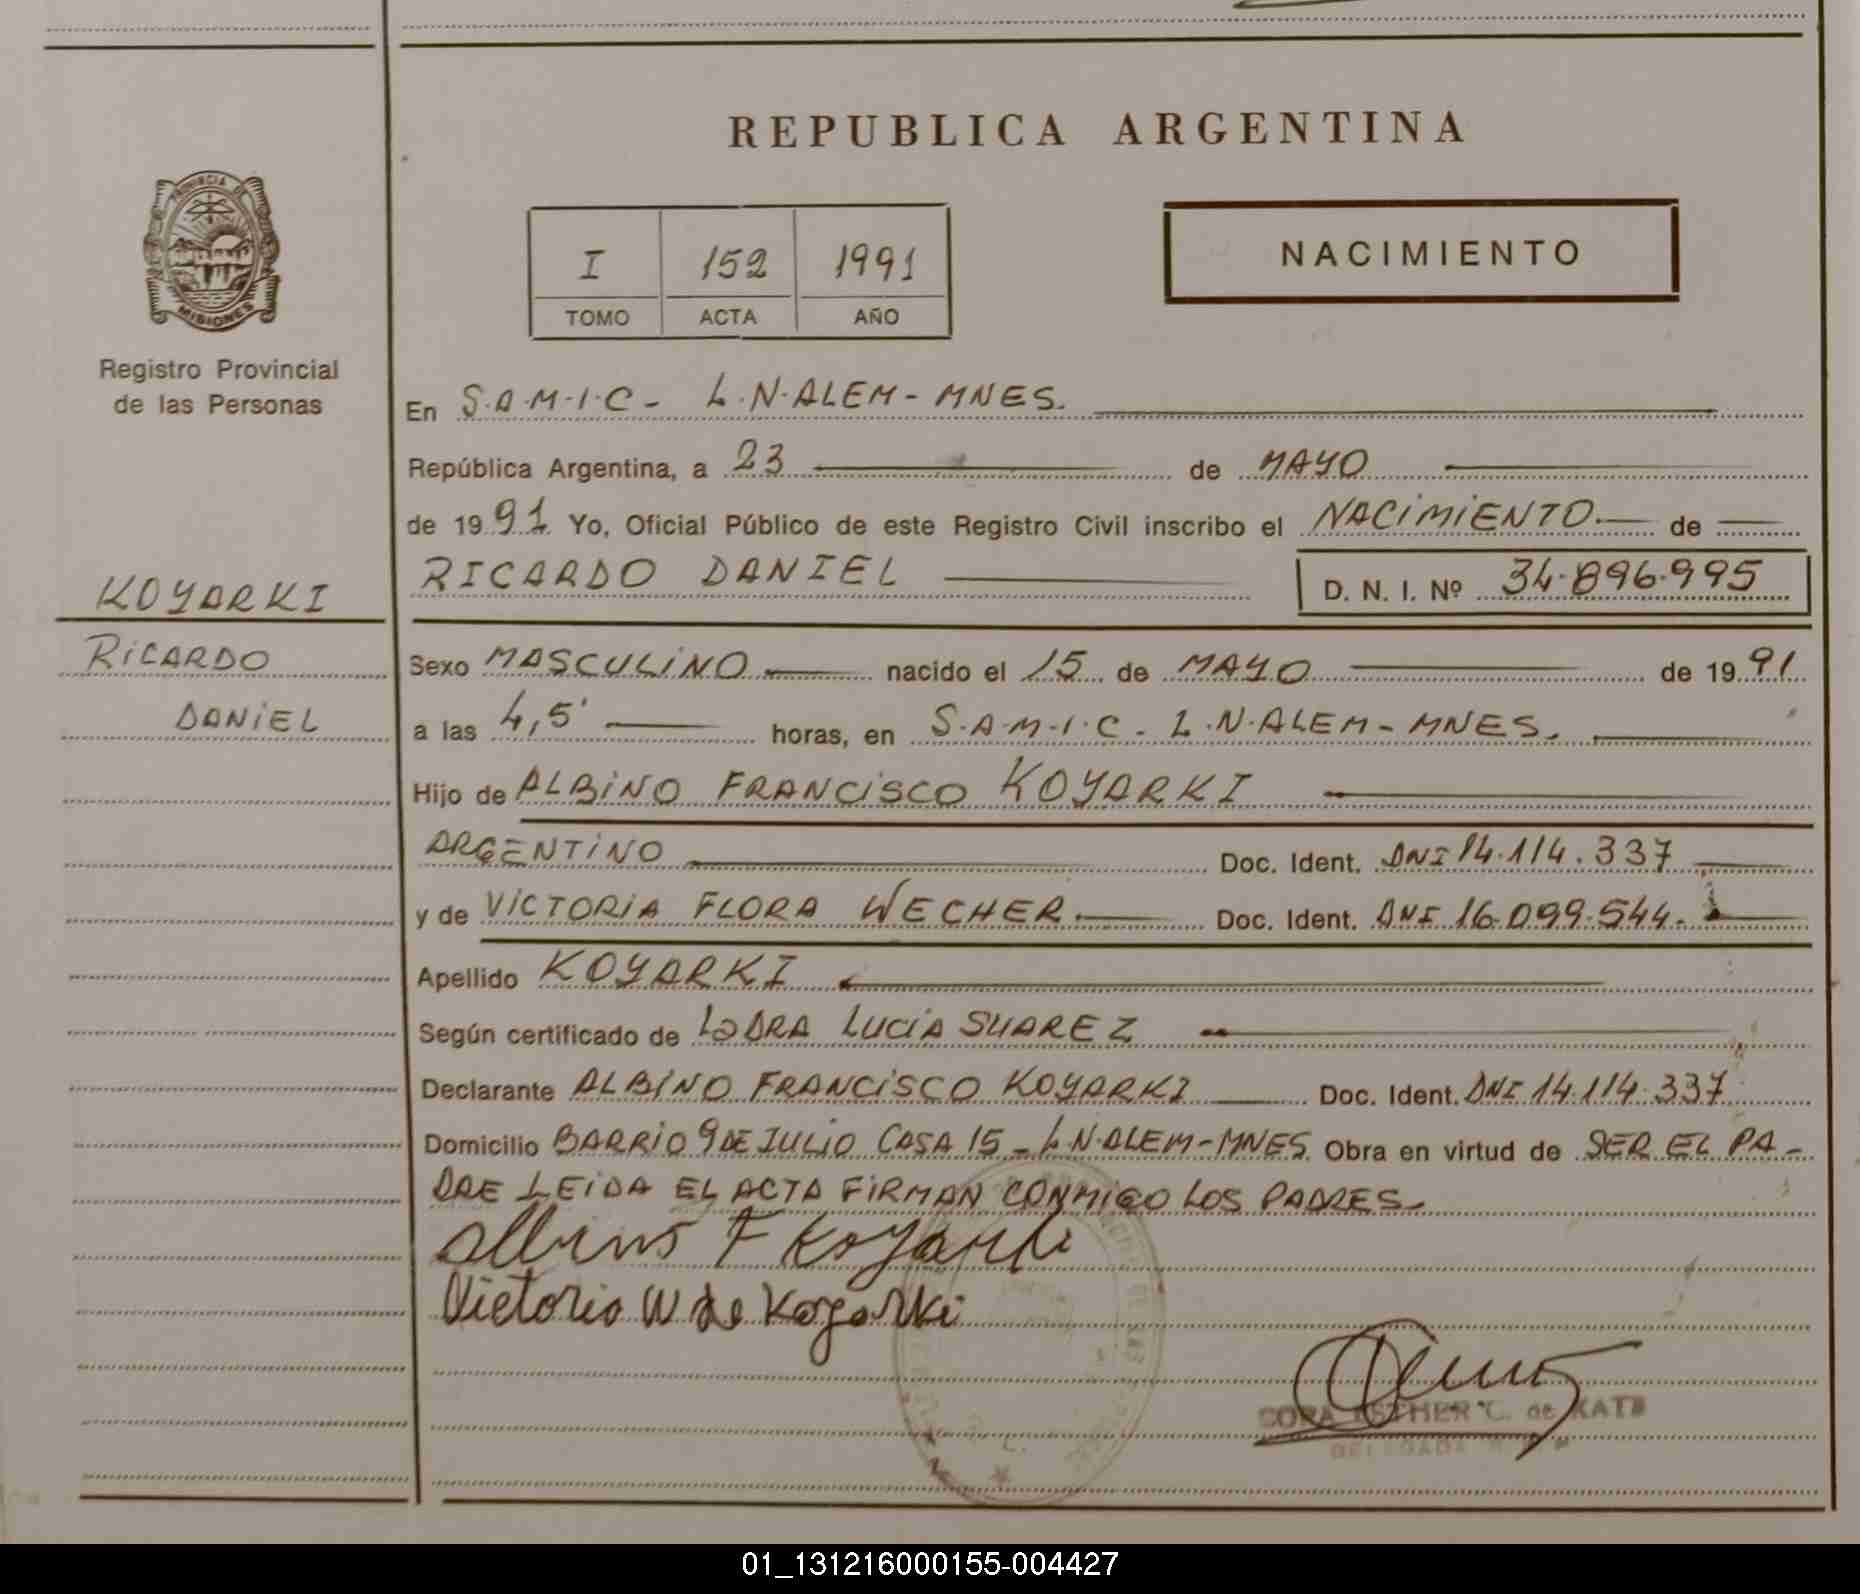 REPUBLICA ARGENTINA
PROVINCIA DE
MISIONES
Registro Provincial
de las Personas
I 152 1991
TOMO ACTA AÑO
NACIMIENTO
En S.A.M.I.C - L.N.ALEM - MNES.
República Argentina, a 23 de MAYO
de 1991 Yo, Oficial Público de este Registro Civil inscribo el NACIMIENTO. de
KOYARKI
RICARDO DANIEL
D. N. I. Nº 34.896.995
RICARDO
DANIEL
Sexo MASCULINO nacido el 15 de MAYO de 1991
a las 4,5' horas, en S.A.M.I.C - L.N.ALEM - MNES.
Hijo de ALBINO FRANCISCO KOYARKI
ARGENTINO Doc. Ident. DNI 14.114.337
y de VICTORIA FLORA WECHER. Doc. Ident. DNI 16.099.544.
Apellido KOYARKI
Según certificado de LaDRA LUCIA SUAREZ
Declarante ALBINO FRANCISCO KOYARKI Doc. Ident. DNI 14.114.337
Domicilio BARRIO 9 DE JULIO CASA 15 - L.N.ALEM - MNES Obra en virtud de SER EL PA-
DRE LEIDA EL ACTA FIRMAN CONMIGO LOS PADRES.
Albino F Koyarki
Victoria W de Koyarki
ESTHER C. de KATZ
DELEGADA
01_131216000155-004427